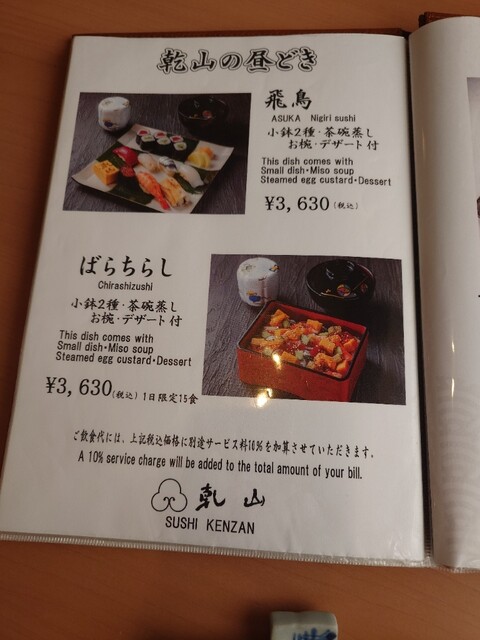 乾山の昼どき
飛鳥
ASUKA Nigiri sushi
小鉢2種・茶碗蒸し
お椀・デザート付
This dish comes with
Small dish・Miso soup
Steamed egg custard・Dessert
¥3,630(税込)
ばらちらし
Chirashizushi
小鉢2種・茶碗蒸し
お椀・デザート付
This dish comes with
Small dish・Miso soup
Steamed egg custard・Dessert
¥3,630(税込) 1日限定15食
ご飲食代には、上記税込価格に別途サービス料10%を加算させていただきます。
A 10% service charge will be added to the total amount of your bill.
乾山
SUSHI KENZAN